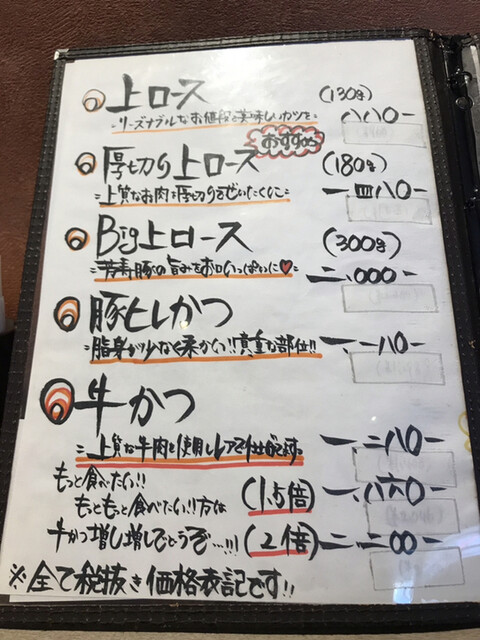 上ロース (130g)
-リーズナブルなお値段と美味しいカツを- 八八〇-
おすすめ
厚切り上ロース (180g)
=上質なお肉を厚切りでぜいたくに= 一四八〇-
Big上ロース (300g)
=芳寿豚の旨みをお口いっぱいに♥= 二、000-
豚ヒレかつ
=脂身が少なく柔かい!!貴重な部位!! 一、一八〇-
牛かつ
=上質な牛肉を使用しレアで仕上げてます。 一、二八〇-
もっと食べたい!!
もっともっと食べたい!!方は (1.5倍) 一、八六〇-
牛かつ増し増しでどうぞ...!!! (2倍) 二、二〇〇-
※全て税抜き価格表記です!!